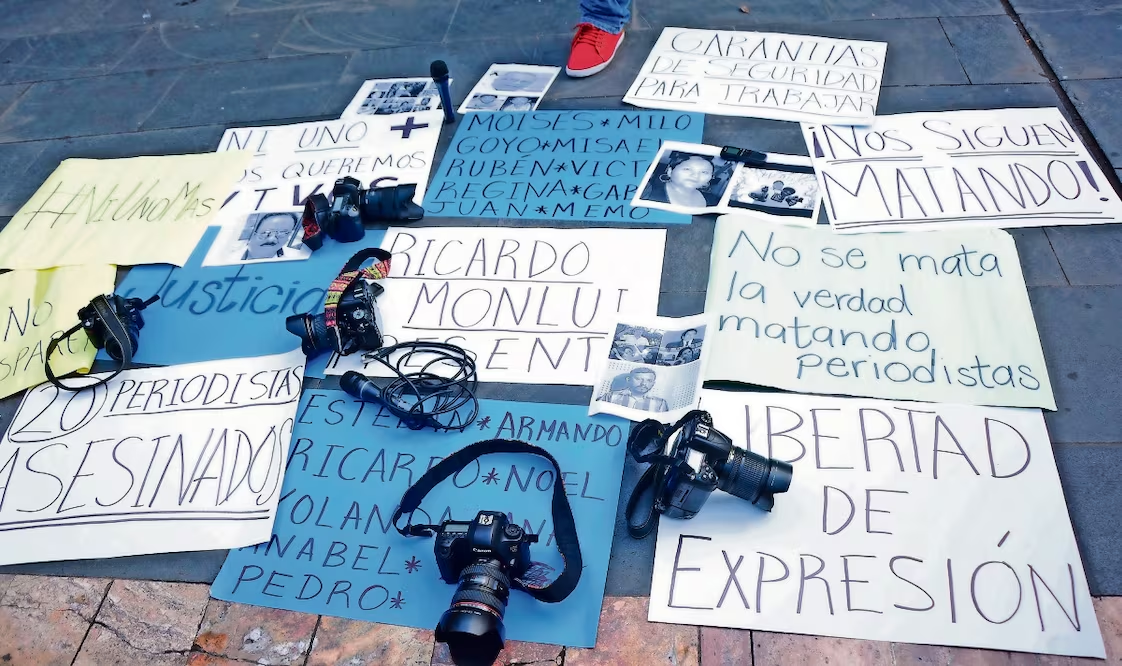 GARANTIAS
DE SEGURIDAD
PARA TRABAJAR
NI UNO +
QUEREMOS
MOISES*MILO
GOYO*MISAE
RUBÉN*VICT
REGINA*GAB
JUAN*MEMO
¡NOS SIGUEN
MATANDO!
#NIUNOMAS
Justicia
NO
RICARDO
MONLUI
No se mata
la verdad
matando
periodistas
20 PERIODISTAS
ASESINADOS
ARMANDO
RICARDO*NOEL
ANABEL*
PEDRO*
Canon
LIBERTAD
DE
EXPRESIÓN